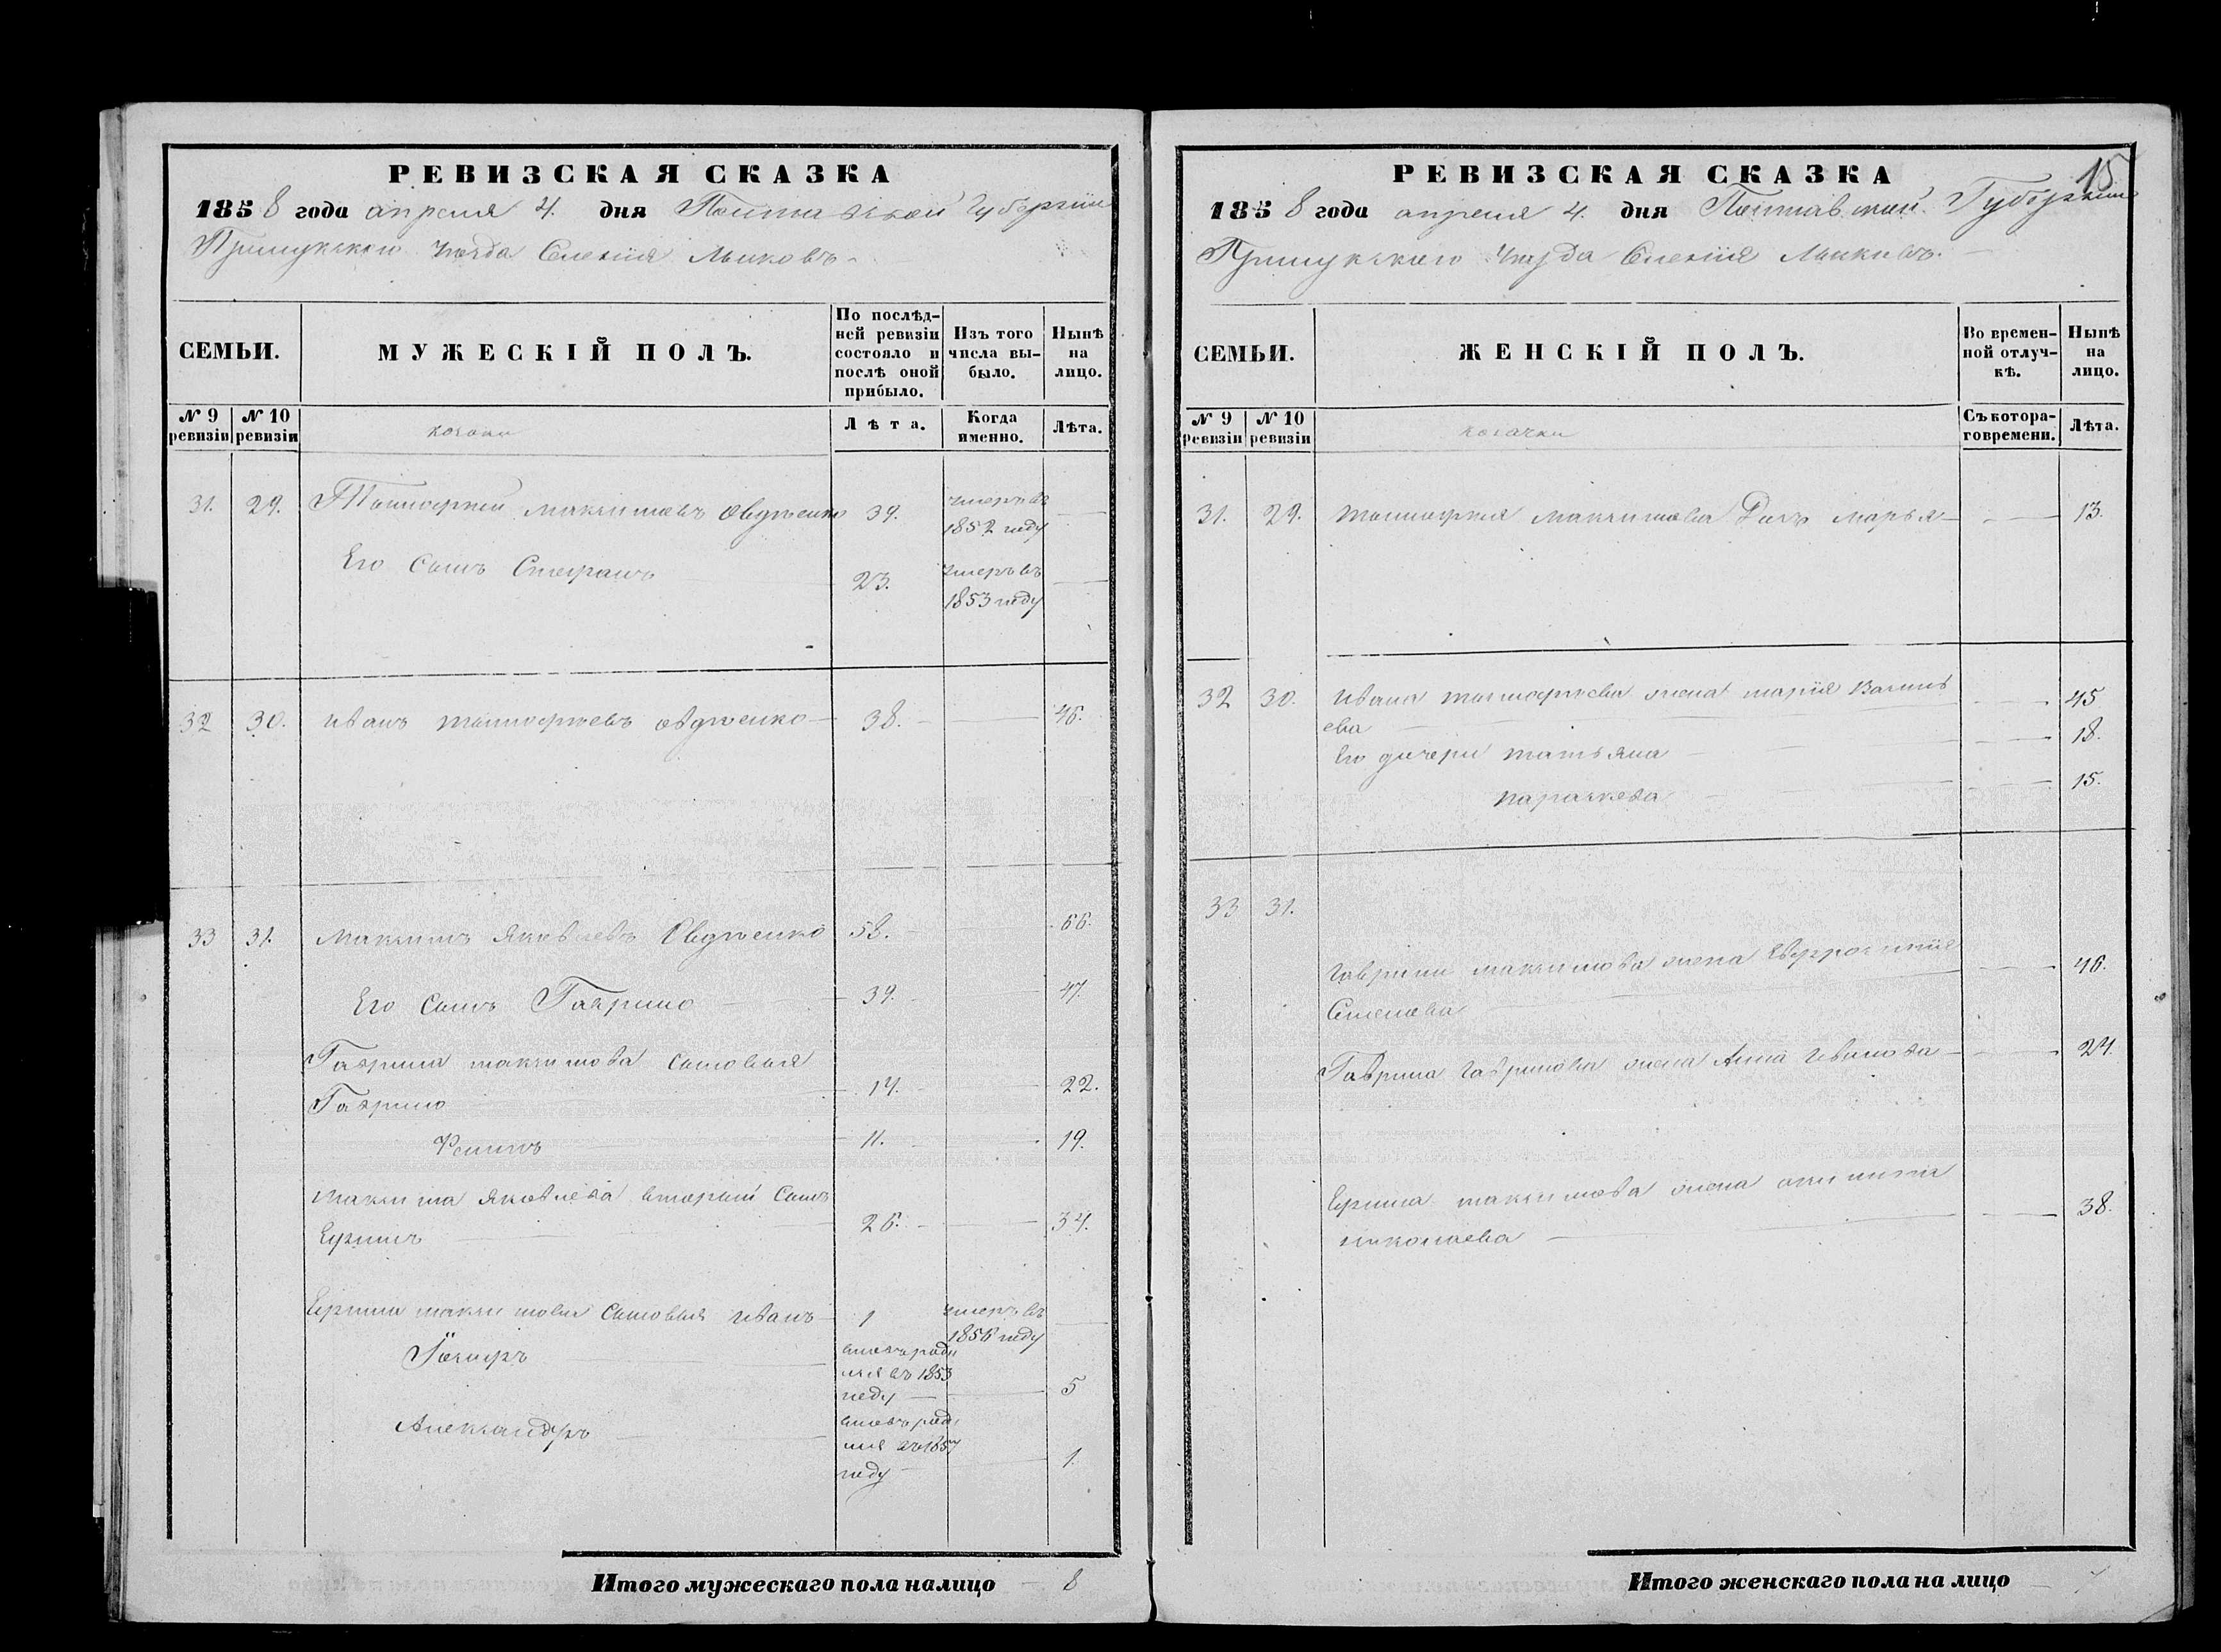 РЕВИЗСКАЯ СКАЗКА
1858 года апреля 4. дня Полтавской Губернии
Прилукскаго Уезда Селения Лысковъ
СЕМЬИ.
МУЖЕСКІЙ ПОЛЪ.
По послѣд-
ней ревизіи
состояло и
послѣ оной
прибыло.
Изъ того
числа вы-
было.
Нынѣ
на
лицо.
№ 9 ревизіи
№ 10 ревизіи
козаки
Лѣта.
Когда
именно.
Лѣта.
31. 29. Тимофей Максимовъ Овдѣенко 39. умеръ въ
1852 году
Его сынъ Стефанъ 23. умеръ въ
1853 году
32 30. Иванъ Тимофѣевъ Овдѣенко 38. 46.
33 31. Максимъ Яковлевъ Овдѣенко 58. 66.
Его сынъ Гаврило 39. 47.
Гаврила Максимова сыновья
Гаврило 14. 22.
11. 19.
Максима Яковлева вторый сынъ
Ефимъ 26. 34.
Ефима Максимова сыновья Иванъ 1 умеръ въ
1856 году
вновь роди
лся въ 1853
году 5
Александръ вновь роди
лся въ 1857
году 1.
Итого мужескаго пола налицо 8
15
РЕВИЗСКАЯ СКАЗКА
1858 года апреля 4. дня Полтавской Губернии
Прилукскаго Уезда Селения Лысковъ.
СЕМЬИ.
ЖЕНСКІЙ ПОЛЪ.
Во времен-
ной отлуч-
кѣ.
Нынѣ
на
лицо.
№ 9 ревизіи
№ 10 ревизіи
козачки
Съ котора-
го времени.
Лѣта.
31. 29. Тимофея Максимова дочь Марья 13.
32 30. Ивана Тимофѣева жена Мария Василь 45
ева
Его дочери Татьяна 18.
Параскева 15.
33 31.
Гаврила Максимова жена Евфросиния 46.
Семенова
Гаврила Гаврилова жена Анна Иванова 24.
Ефима Максимова жена
Николаева 38.
Итого женскаго пола на лицо